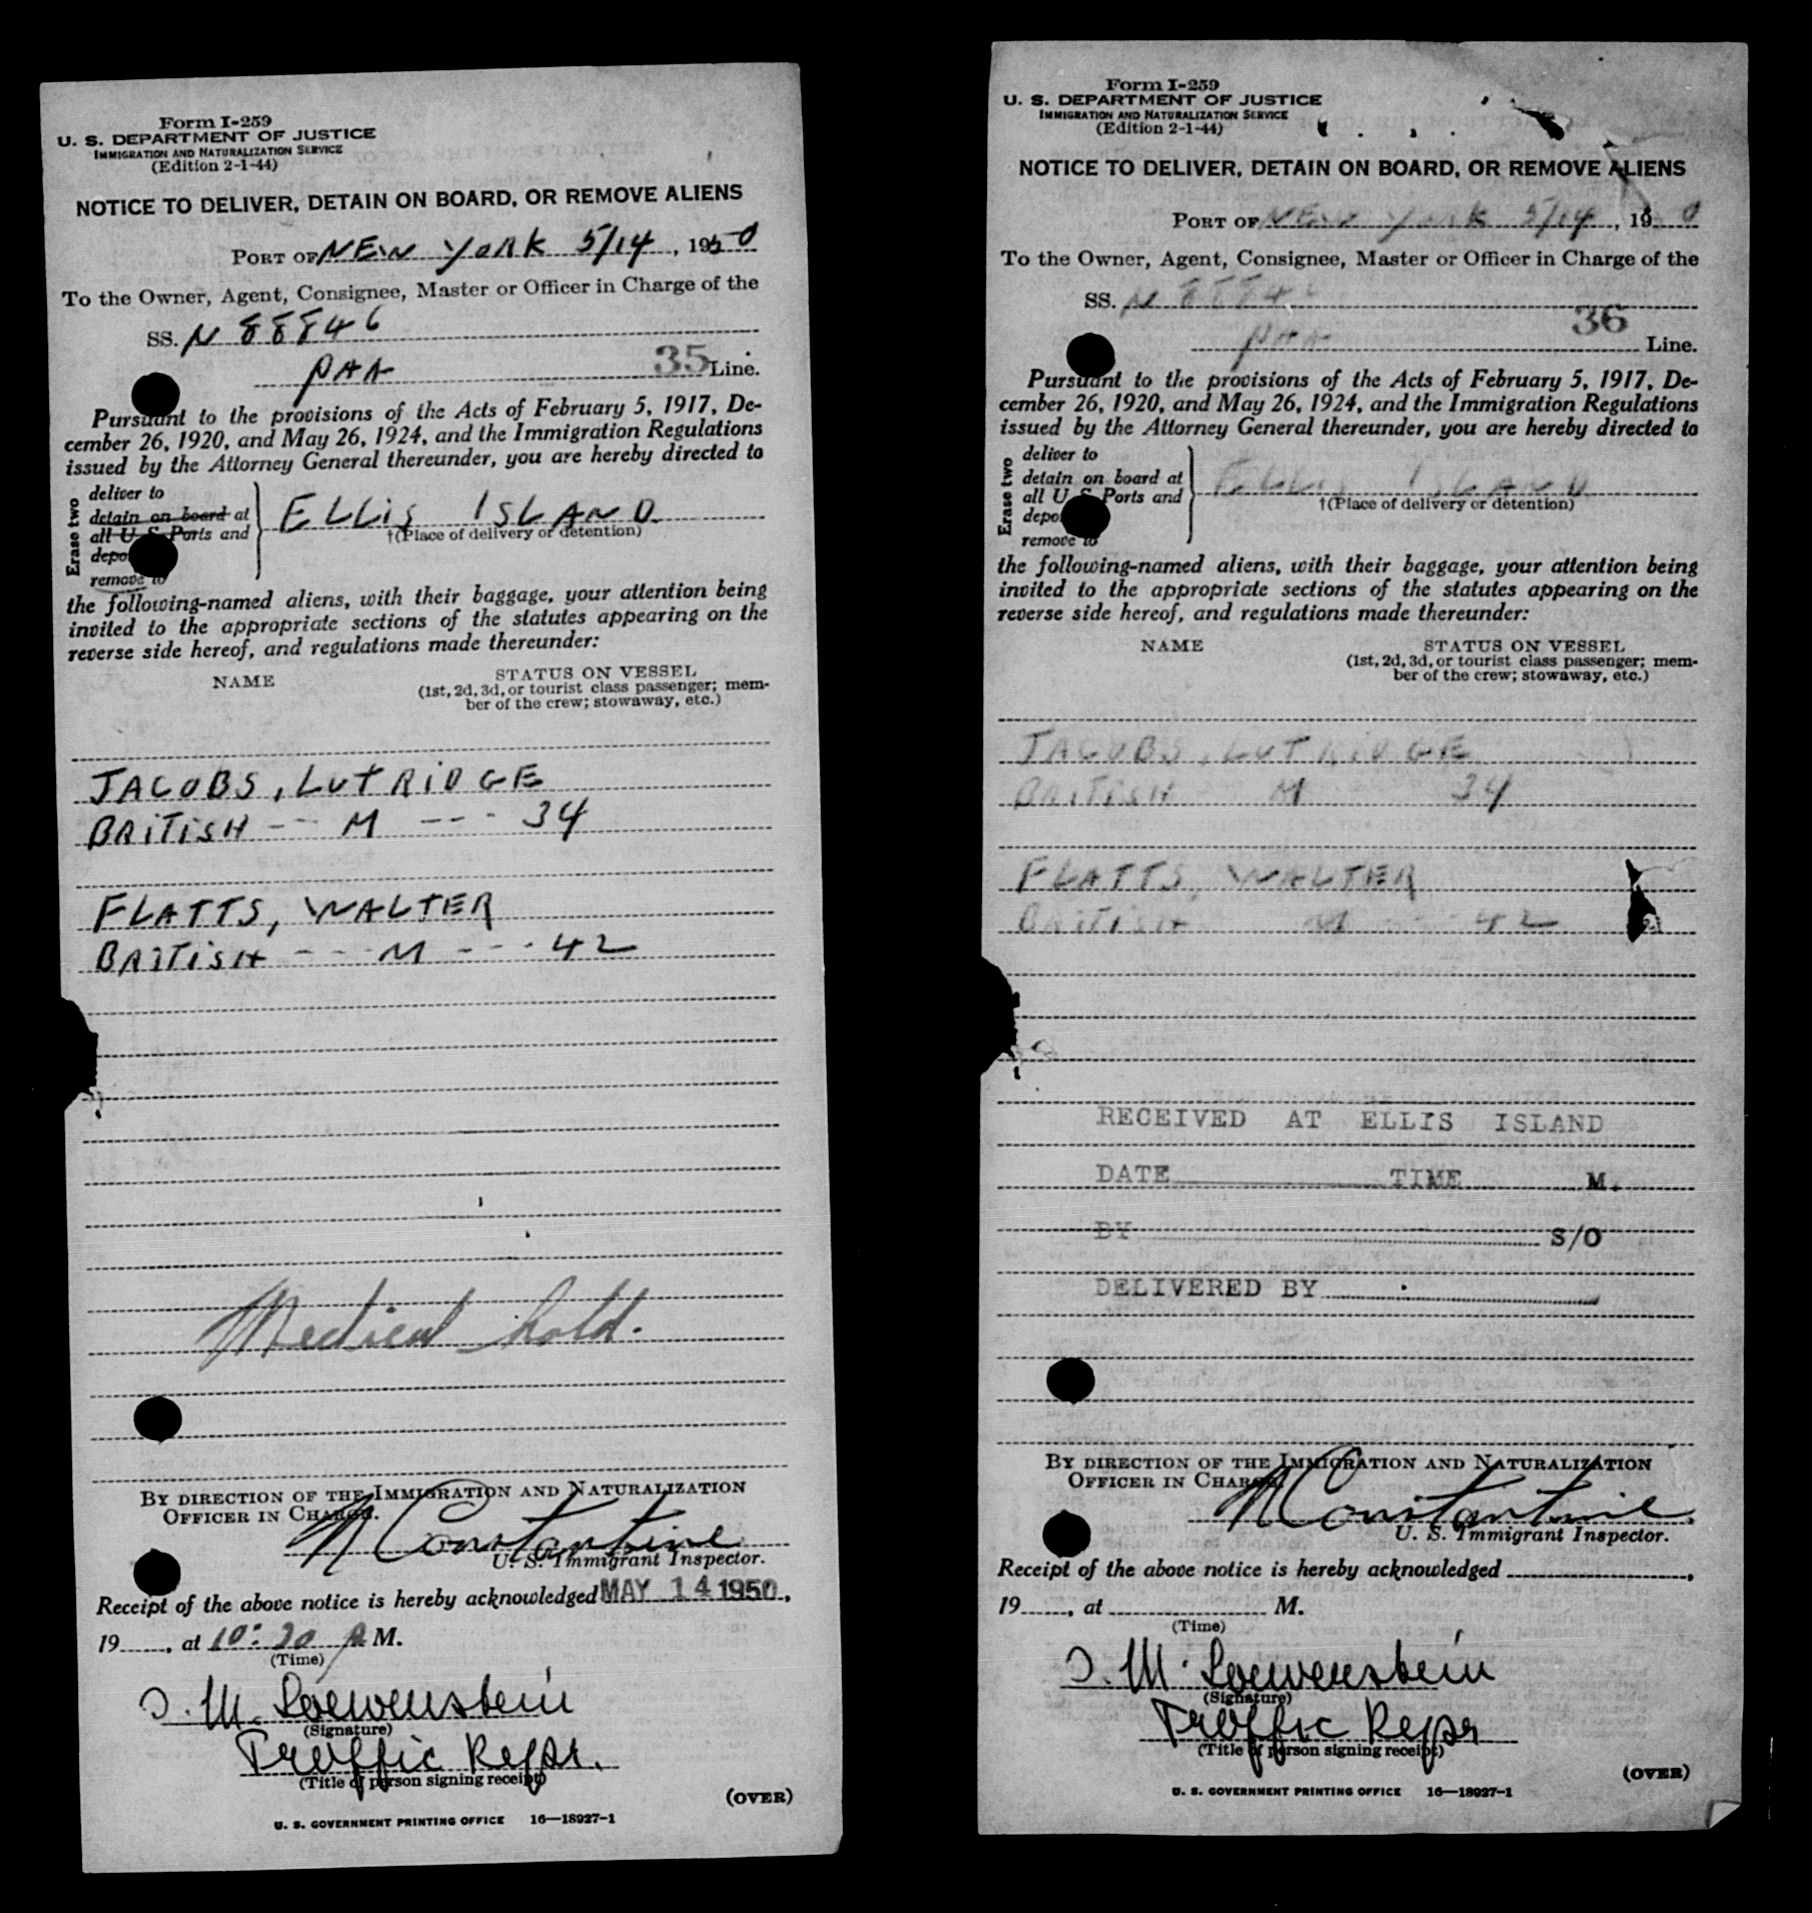 Form I-259
U. S. DEPARTMENT OF JUSTICE
IMMIGRATION AND NATURALIZATION SERVICE
(Edition 2-1-44)
NOTICE TO DELIVER, DETAIN ON BOARD, OR REMOVE ALIENS
PORT OF NEW YORK 5/14, 1950
To the Owner, Agent, Consignee, Master or Officer in Charge of the
SS. N 88846
PAA 35 Line.
Pursuant to the provisions of the Acts of February 5, 1917, De-
cember 26, 1920, and May 26, 1924, and the Immigration Regulations
issued by the Attorney General thereunder, you are hereby directed to
Erase two
deliver to
detain on board at
all U S Ports and
depo
remove to
ELLIS ISLAND
†(Place of delivery or detention)
the following-named aliens, with their baggage, your attention being
invited to the appropriate sections of the statutes appearing on the
reverse side hereof, and regulations made thereunder:
NAME STATUS ON VESSEL
(1st, 2d, 3d, or tourist class passenger; mem-
ber of the crew; stowaway, etc.)
JACOBS, LUTRIDGE
BRITISH --- M --- 34
FLATTS, WALTER
BRITISH --- M --- 42
Medical hold.
BY DIRECTION OF THE IMMIGRATION AND NATURALIZATION
OFFICER IN CHARGE.
N Constantine
U. S. Immigrant Inspector.
Receipt of the above notice is hereby acknowledged MAY 14 1950,
19......, at 10:20 P M.
(Time)
J. M. Loewenstein
(Signature)
Traffic Repr.
(Title of person signing receipt)
(OVER)
U. S. GOVERNMENT PRINTING OFFICE 16—18927-1
Form I-259
U. S. DEPARTMENT OF JUSTICE
IMMIGRATION AND NATURALIZATION SERVICE
(Edition 2-1-44)
NOTICE TO DELIVER, DETAIN ON BOARD, OR REMOVE ALIENS
PORT OF NEW YORK 5/14, 1950
To the Owner, Agent, Consignee, Master or Officer in Charge of the
SS. N 8884
36
PAA Line.
Pursuant to the provisions of the Acts of February 5, 1917, De-
cember 26, 1920, and May 26, 1924, and the Immigration Regulations
issued by the Attorney General thereunder, you are hereby directed to
Erase two
deliver to
detain on board at
all U S Ports and
depo
remove to
ELLIS ISLAND
†(Place of delivery or detention)
the following-named aliens, with their baggage, your attention being
invited to the appropriate sections of the statutes appearing on the
reverse side hereof, and regulations made thereunder:
NAME STATUS ON VESSEL
(1st, 2d, 3d, or tourist class passenger; mem-
ber of the crew; stowaway, etc.)
JACOBS, LUTRIDGE
BRITISH M 34
FLATTS, WALTER
BRITISH M 42
RECEIVED AT ELLIS ISLAND
DATE TIME M.
BY S/O
DELIVERED BY
BY DIRECTION OF THE IMMIGRATION AND NATURALIZATION
OFFICER IN CHARGE.
N Constantine
U. S. Immigrant Inspector.
Receipt of the above notice is hereby acknowledged ,
19......, at M.
(Time)
J. M. Loewenstein
(Signature)
Traffic Repr
(Title of person signing receipt)
(OVER)
U. S. GOVERNMENT PRINTING OFFICE 16—18927-1